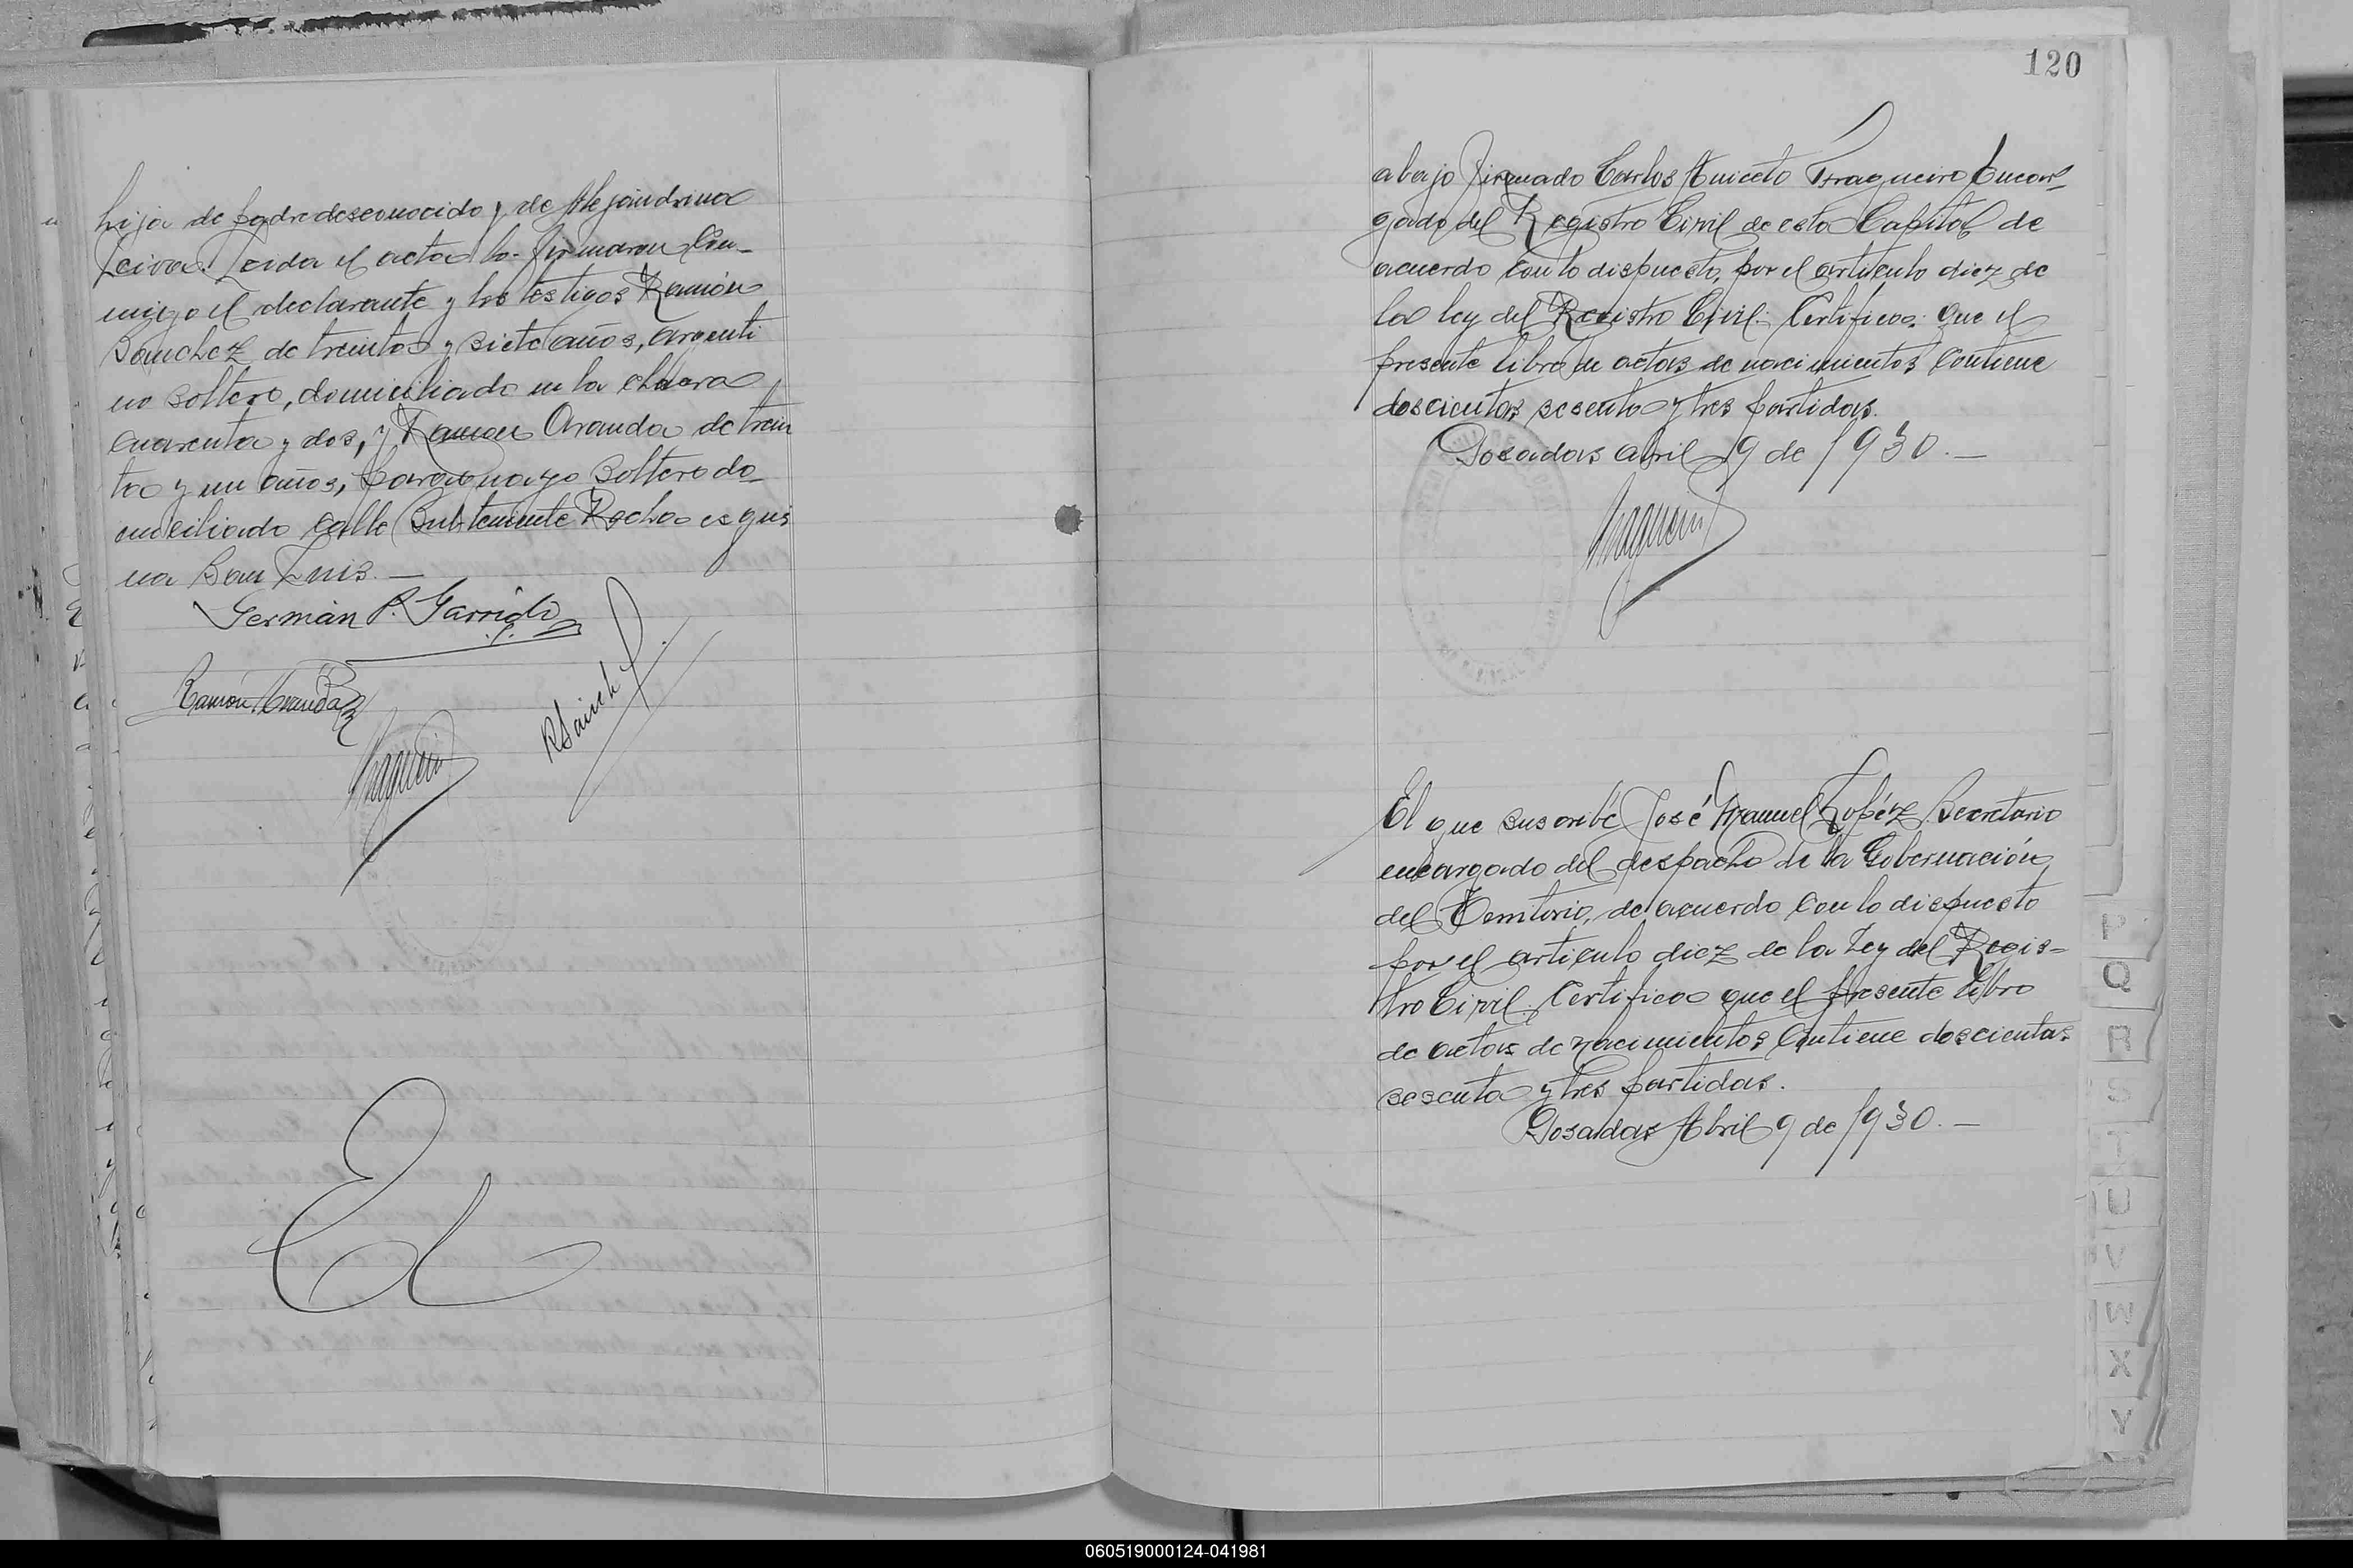 hija de padre desconocido y de Alejandrina
Leiva. Leida el acta la firmaron con-
migo el declarante y los testigos Ramón
Sanchez de treinta y siete años, argenti
no soltero, domiciliado en la chacra
cuarenta y dos, y Ramon Aranda de trein
ta y un años, paraguayo soltero do-
miciliado calle Subteniente Rocha esqui
na San Luis.—
Germán P. Garrido
Ramón Aranda
RSanchez
Fragueiro
120
abajo firmado Carlos Aniceto Fragueiro Encar-
gado del Registro Civil de esta Capital de
acuerdo con lo dispuesto, por el articulo diez de
la ley del Registro Civil: Certifico: que el
presente libro de actas de nacimientos contiene
doscientas sesenta y tres partidas.
Posadas abril 9 de 1930.—
Fragueiro
El que suscribe José Manuel Lopéz Secretario
encargado del despacho de la Gobernación
del Territorio, de acuerdo con lo dispuesto
por el articulo diez de la Ley del Regis-
tro Civil. Certifica que el presente libro
de actas de nacimientos contiene doscientas
sesenta y tres partidas.
Posadas Abril 9 de 1930.—
P
Q
R
S
T
U
V
W
X
Y
060519000124-041981